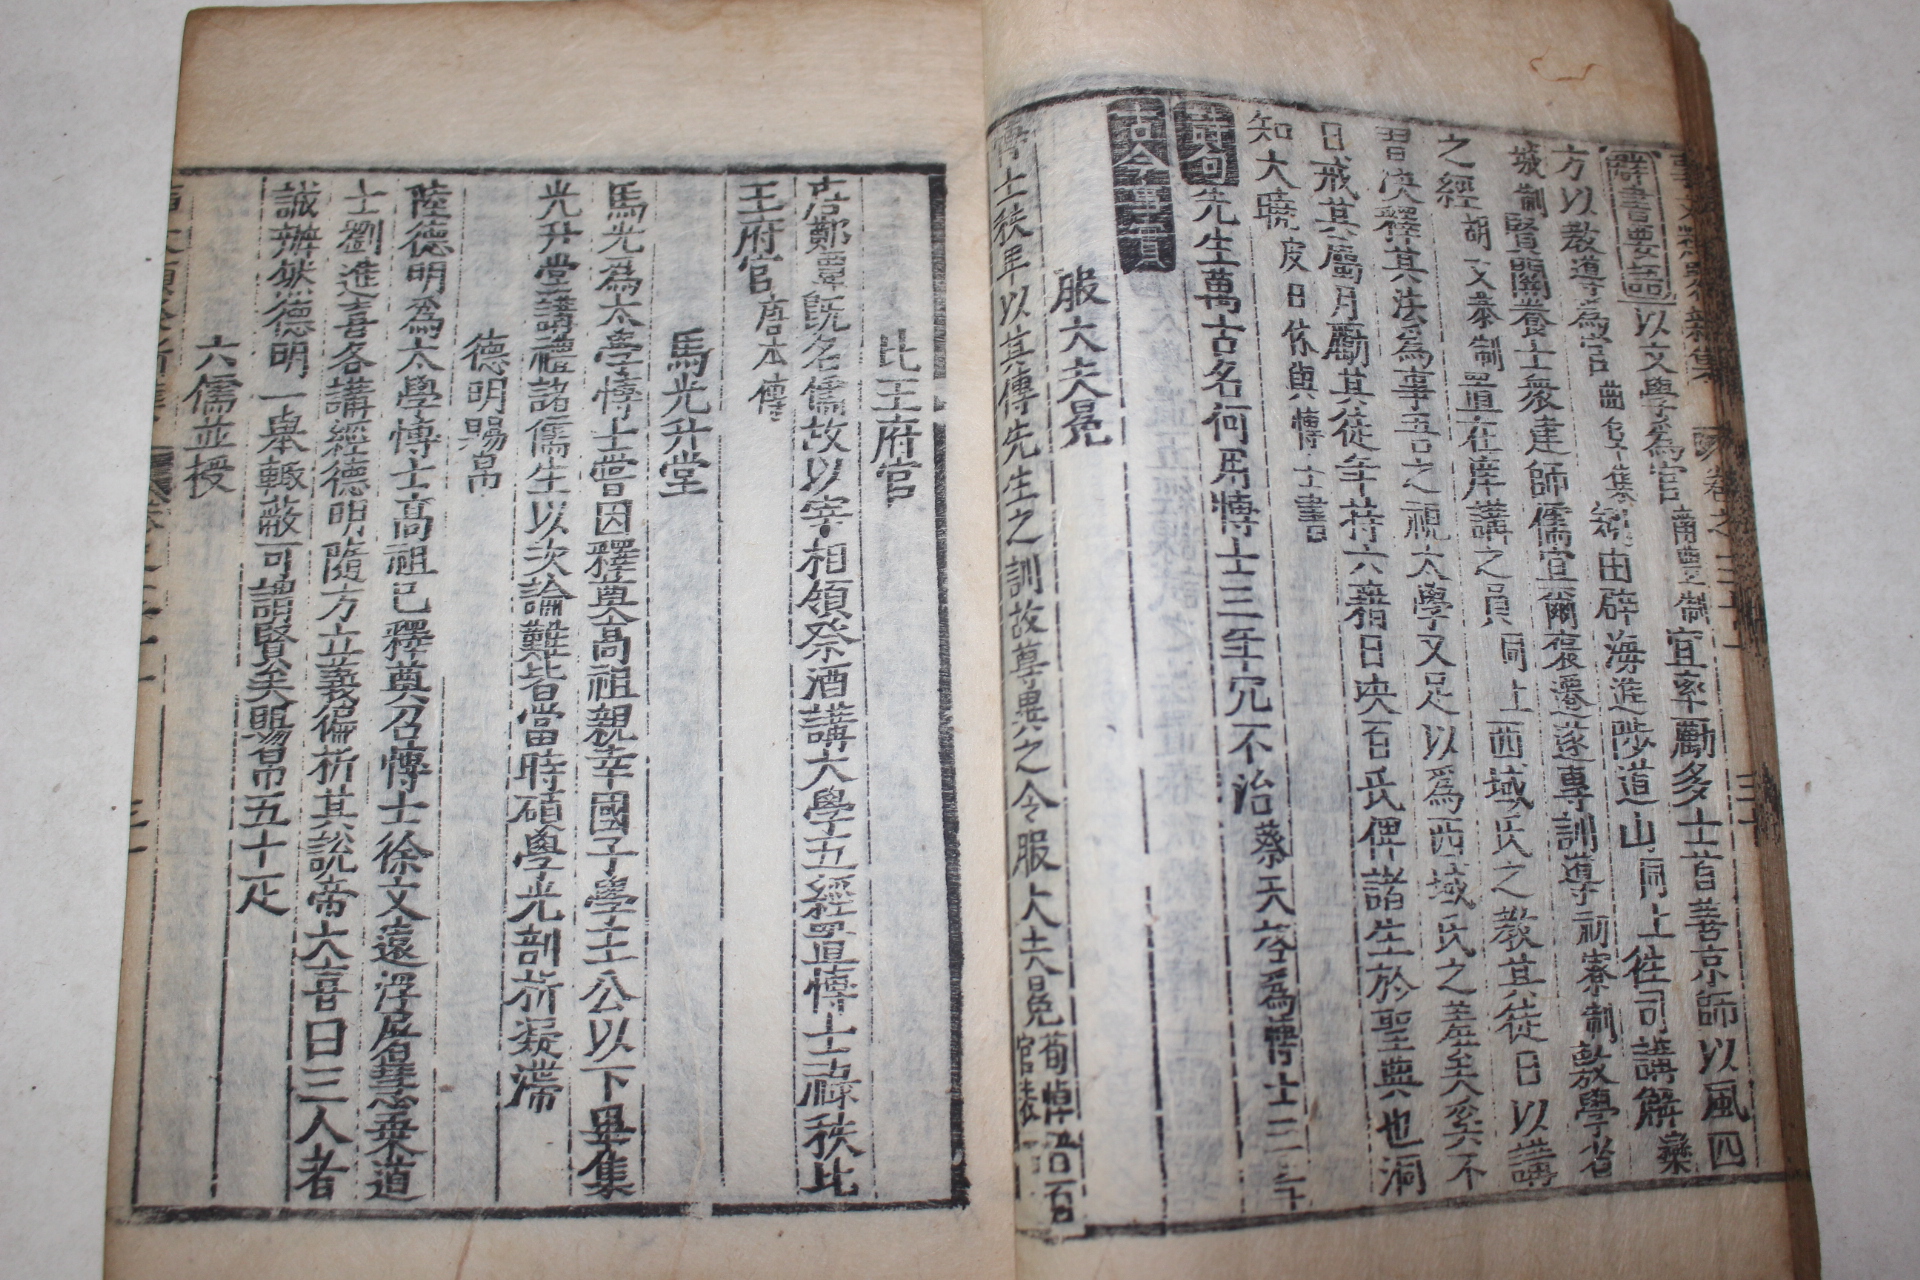 群書要語以文學爲官南豐制宜率勵多士首善京師以風四
方以教導爲官曲阜集親由辟海進陟道山同上往司講解欒
城制賢關養士衆建師儒宜爾褒遷遂專訓導初寮制敎學省
之經胡文恭制置在庠講之員同上西域氏之教其徒日以講
習決釋其法爲事吾之視太學又足以爲西域氏之羞矣矣不
日戒其屬月勵其徒年持六藉日決百氏俾諸生於聖典也洞
知大曉皮日休與博士書
詩句先生萬古名何用博士三年冗不治蔡天啓爲博士三年
古今事實
服大夫冕
博士秩卑以其傳先生之訓故尊異之令服大夫冕荀悼語百官表
比王府官
唐鄭覃旣名儒故以宰相領祭酒講大學五經置博士祿秩比
王府官唐本傳
馬光升堂
馬光爲太學博士嘗因釋奠高祖親幸國子學王公以下畢集
光升堂講禮諸儒生以次論難皆當時碩學光剖析凝滯
德明賜帛
陸德明爲太學博士高祖已釋奠召博士徐文遠浮屠慧乘道
士劉進喜各講經德明隨方立義徧析其說帝大喜曰三人者
誠辯然德明一舉輒蔽可謂賢矣賜帛五十疋
六儒並授